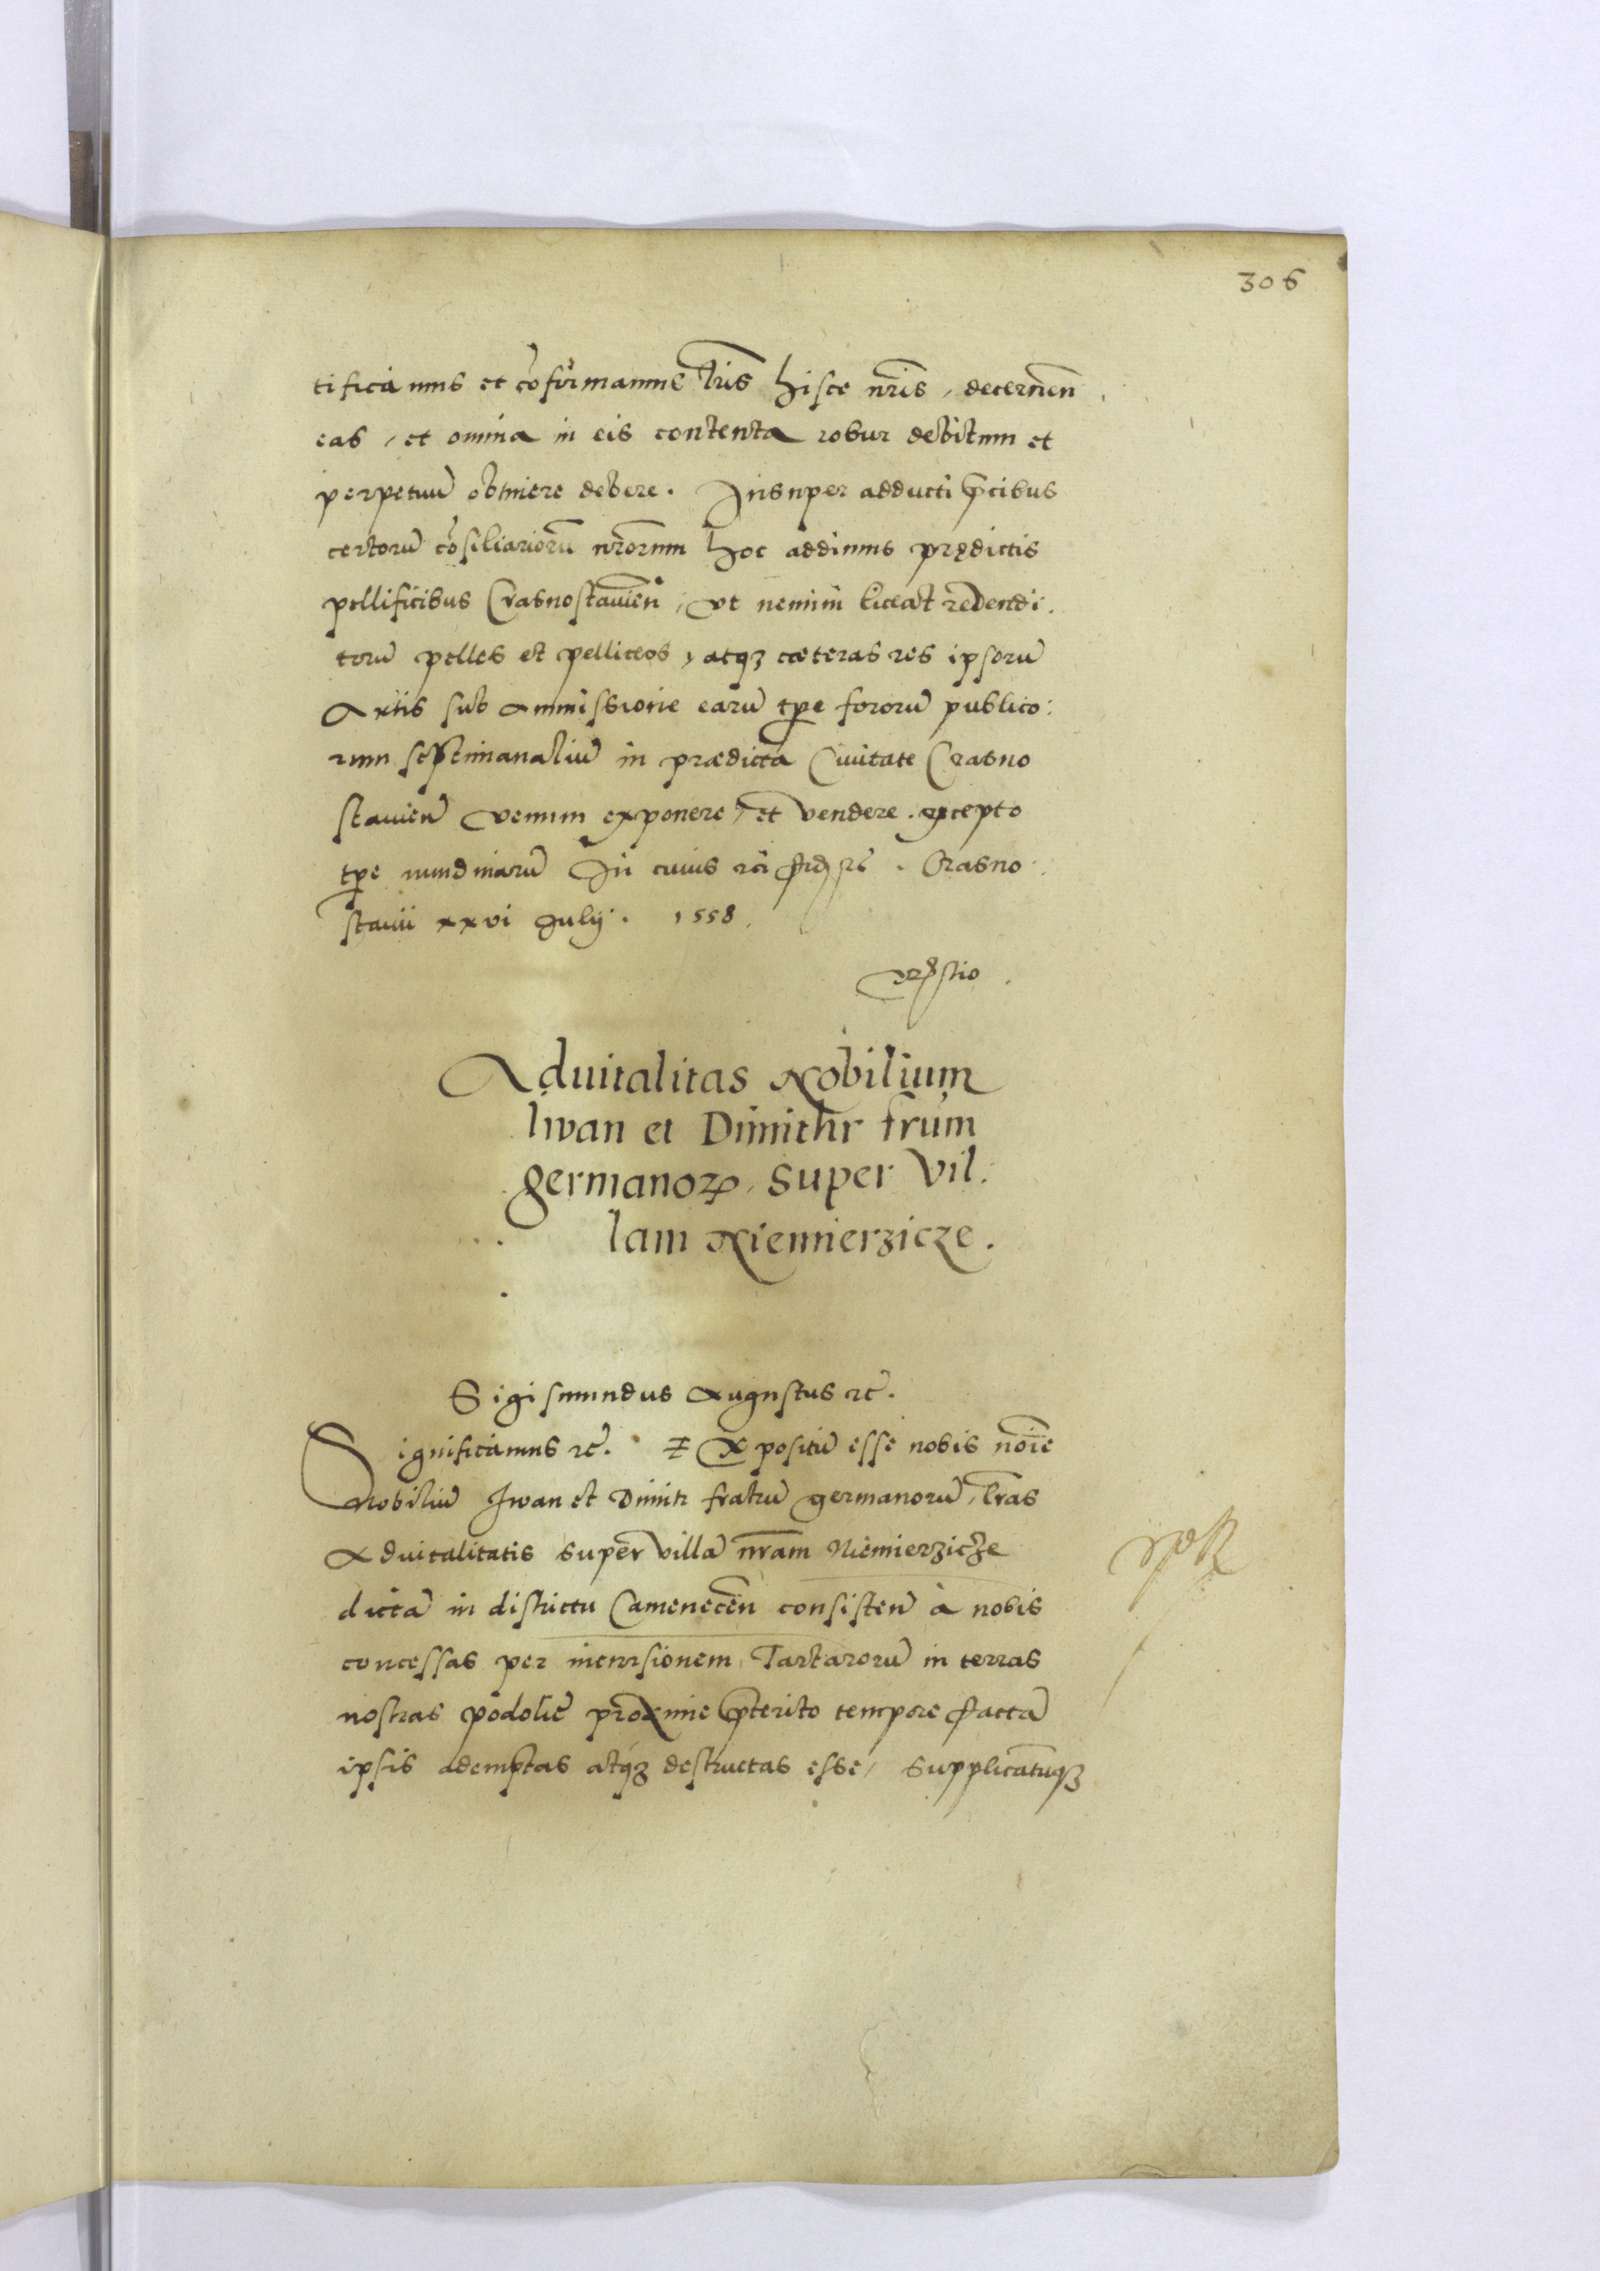 306
tificamus et cõfirmamus lr̃is hisce nr̃is, decernen̄
eas, et omnia in eis contenta robur debitum et
perpetuũ obtinere debere. Insuper adducti p̃cibus
certorũ cõsiliariorũ nr̃orum hoc addimus prędictis
pellificibus Crasnostavien̄, vt nemini liceat redendi.
torũ pelles et pelliceos, atq3 cæteras res ipsorũ
Artis sub ammissione earũ tp̃e fororũ publico:
rum septimanaliũ in prædicta Civitate Crasno
stavien̄ venum exponere, et vendere. excepto
tp̃e nundinarũ In cuius rei fid. Crasno
stavii xxvi Julij. 1558.
Aduitalitas Nobilium
Iwan et Dimithr fr̃um
germanorꝝ, super vil:
lam Niemierzicze.
Sigismundus Augustus rc̃.
Significamus rc̃. Expositũ esse nobis noĩe
Nobiliũ Iwan et Dimitr fratrũ germanorũ, lr̃as
Aduitalitatis super villã nr̃am Niemierzicze
dictã in districtu Camenecen̄ consisten̄ à nobis
concessas per incursionem Tartarorũ in terras
nostras podolię proxime p̃terito tempore factã
ipsis ademptas atq3 destructas esse, supplicatũq3